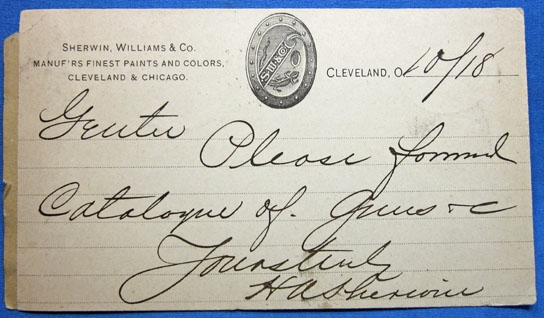 SHERWIN, WILLIAMS & CO.
MANUF'RS FINEST PAINTS AND COLORS,
CLEVELAND & CHICAGO.
S.W.&CO.
CLEVELAND, O. 10/18
Gents
Please forward
Catalogue of Guns &c
Yours truly
H A Sherwin